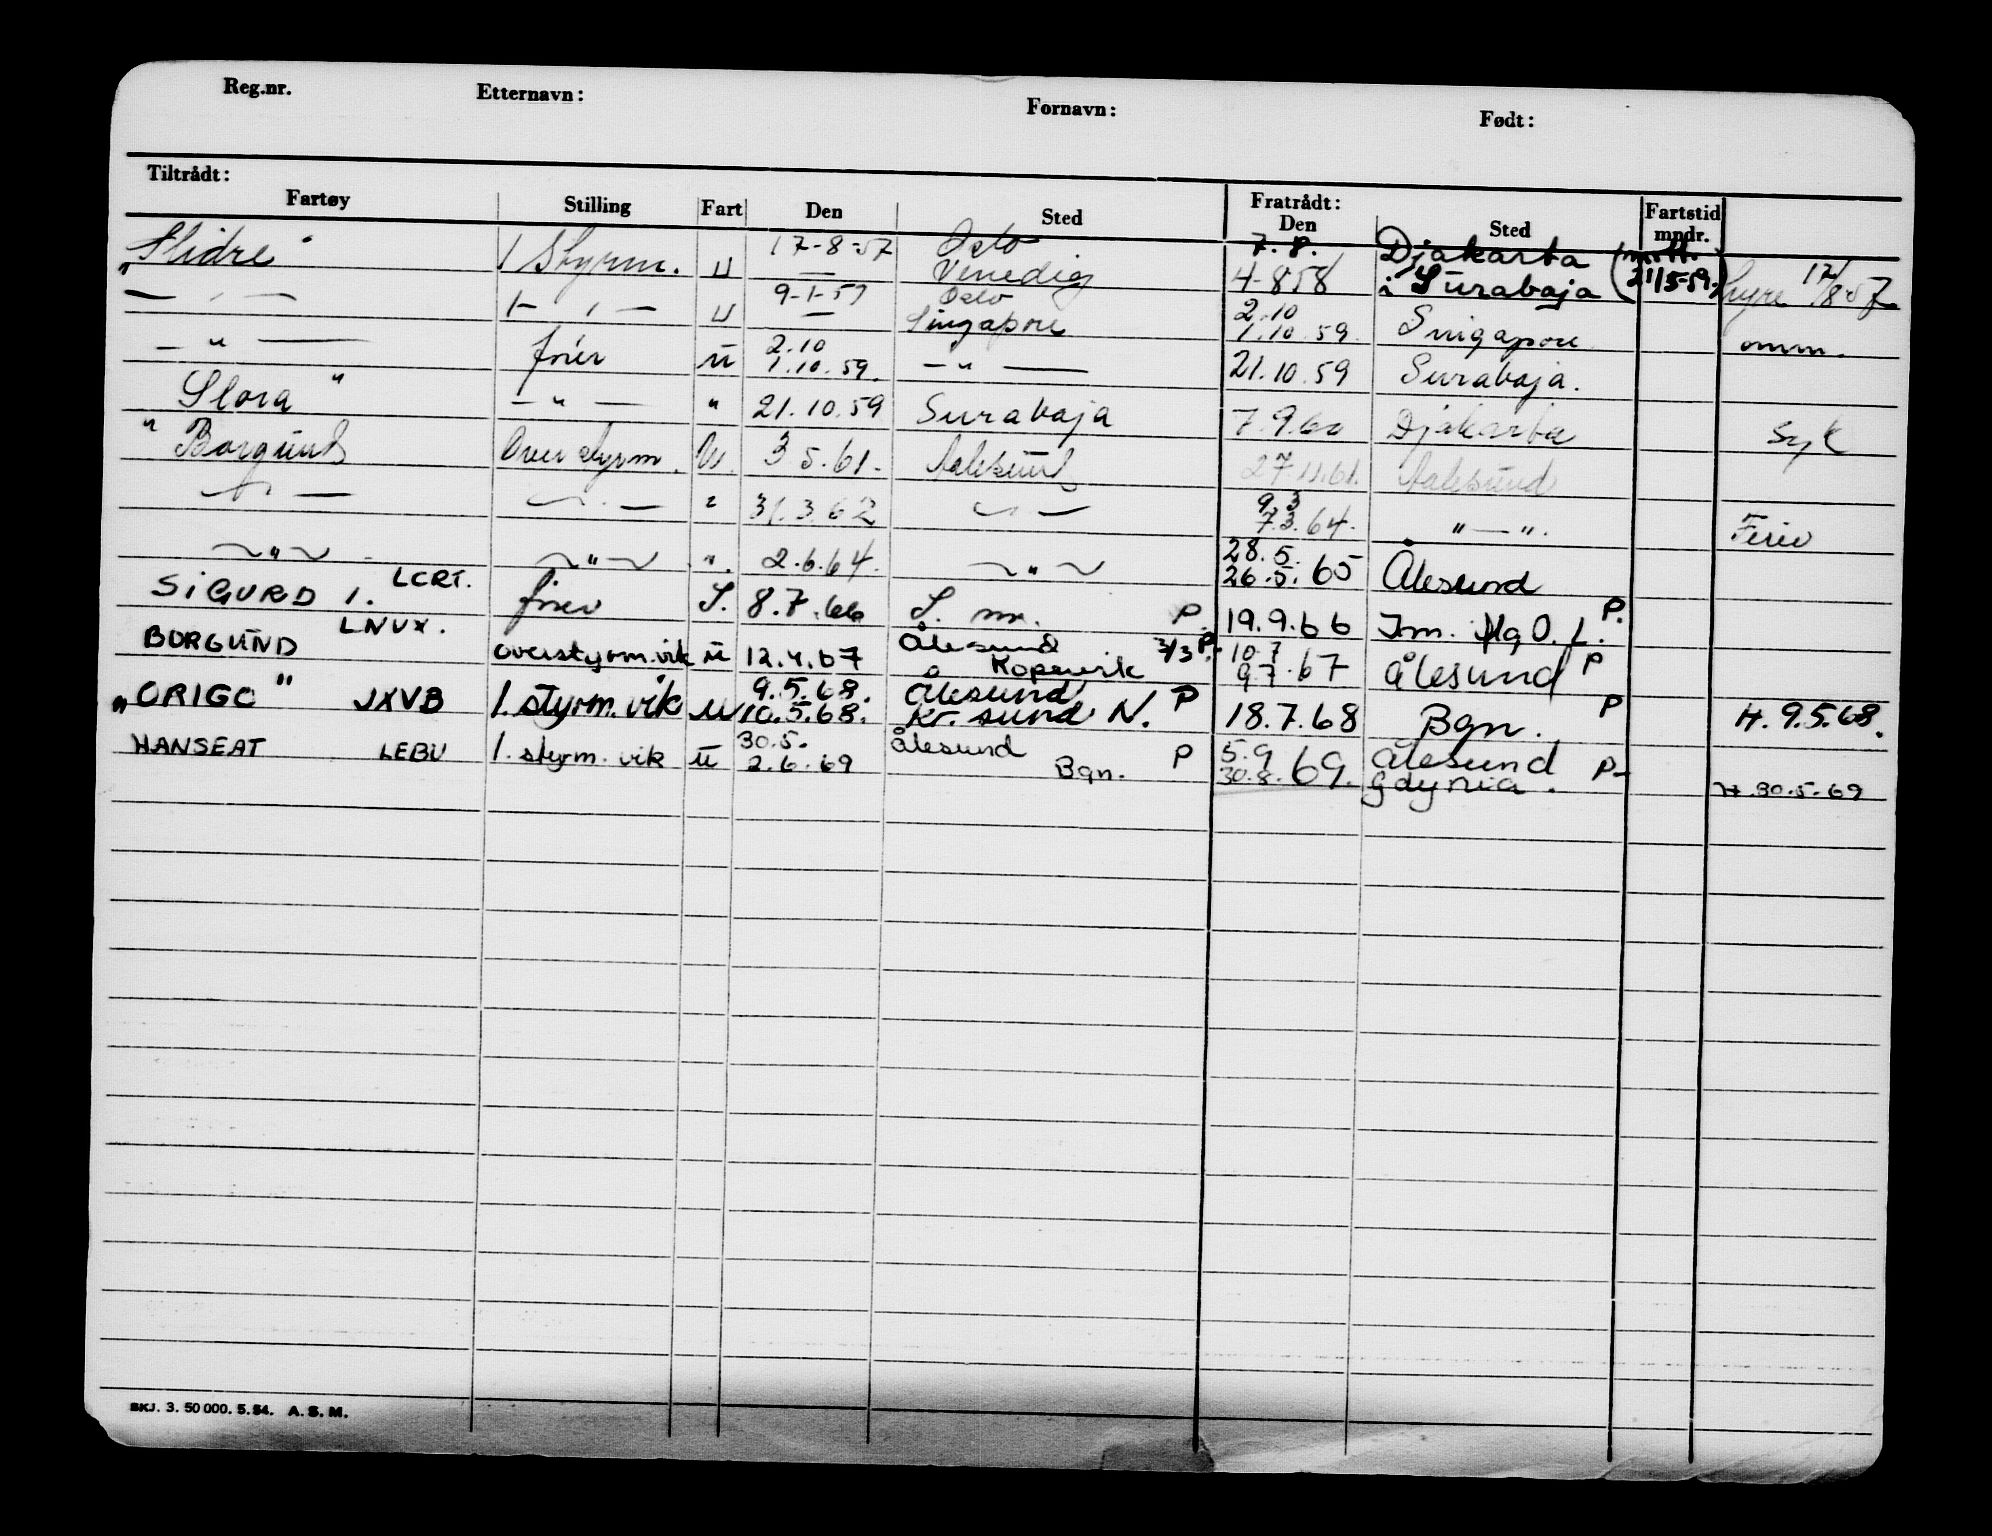 Reg.nr. Etternavn: Fornavn: Født:
Tiltrådt: Fratrådt:
Fartøy Stilling Fart Den Sted Den Sted Fartstid mndr.
"Slidre" 1 Styrm. u 17-8-57 Oslo Venedig 7.8. 4-8 58 Djakarta i Surabaja (21/5-59.) hyre 17/8-57
— " — 1- " — u 9-1-59 — Oslo Singapore 2.10 1.10.59. Singapore omm.
— " — fører u 2.10 1.10.59. — " — 21.10.59 Surabaja.
" Slora " — " — " 21.10.59 Surabaja 7.9.60 Djakarta Syk
" Borgund Overstyrm. u. 3 5.61. Aalesund 27.11.61. Aalesund
— " — — " — " 31.3.62 — " — 9.3 7.3.64. " — ". Ferie
— " — — " — ". 2.6.64. — " — 28.5. 26.5.65 Ålesund
SIGURD 1. LCRT. fører S. 8.7.66 P. 19.9.66 P.
BORGUND LNVX. overstyrm.vik u 12.4.67 Ålesund Kopervik P. 10.7 9.7.67 Ålesund P
"ORIGO" JXVB 1. styrm. vik u 9.5.68. 10.5.68. Ålesund Kr. sund N. P 18.7.68 Bgn. P H. 9.5.68.
HANSEAT LEBU 1. styrm. vik u 30.5. 2.6.69 Ålesund Bgn. P 5.9 30.8.69. Ålesund Gdynia. P- H. 30.5.69
SKJ. 3. 50 000. 5. 54. A. S. M.